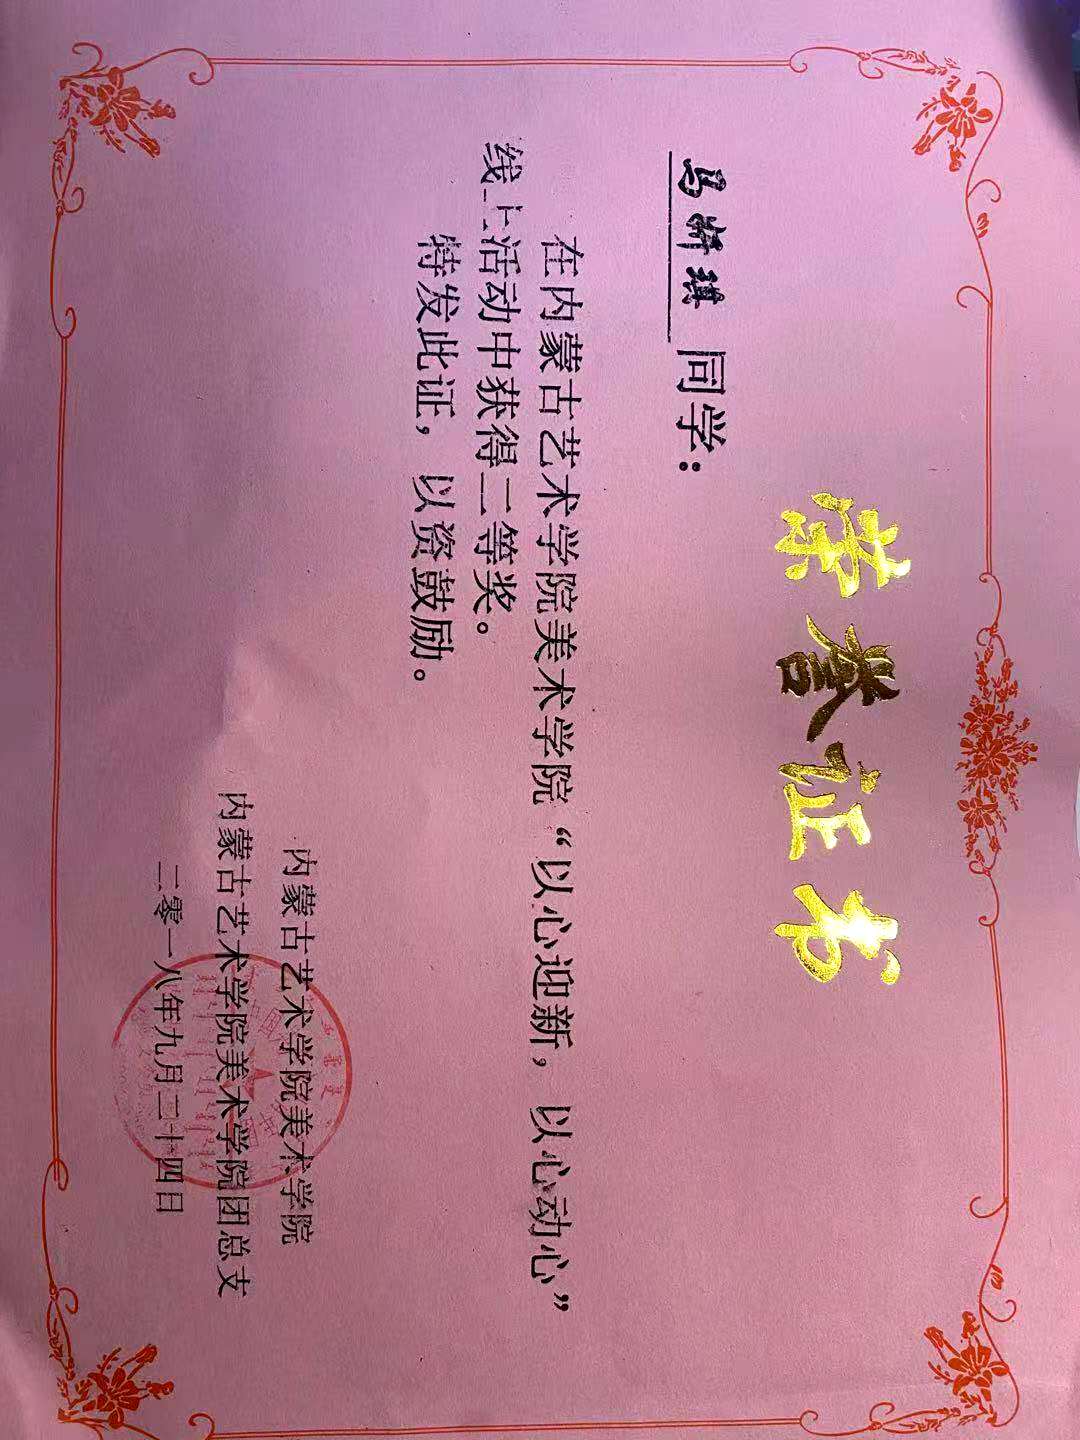 荣誉证书
马昕琪 同学：
在内蒙古艺术学院美术学院“以心迎新，以心动心”
线上活动中获得二等奖。
特发此证，以资鼓励。
内蒙古艺术学院美术学院
内蒙古艺术学院美术学院团总支
二零一八年九月二十四日